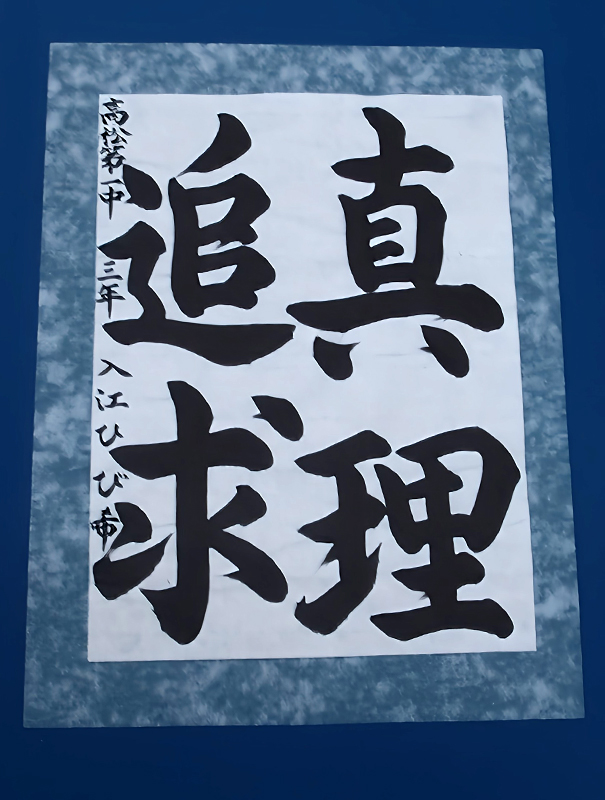 真理
追求
高松第一中 三年 入江ひび希